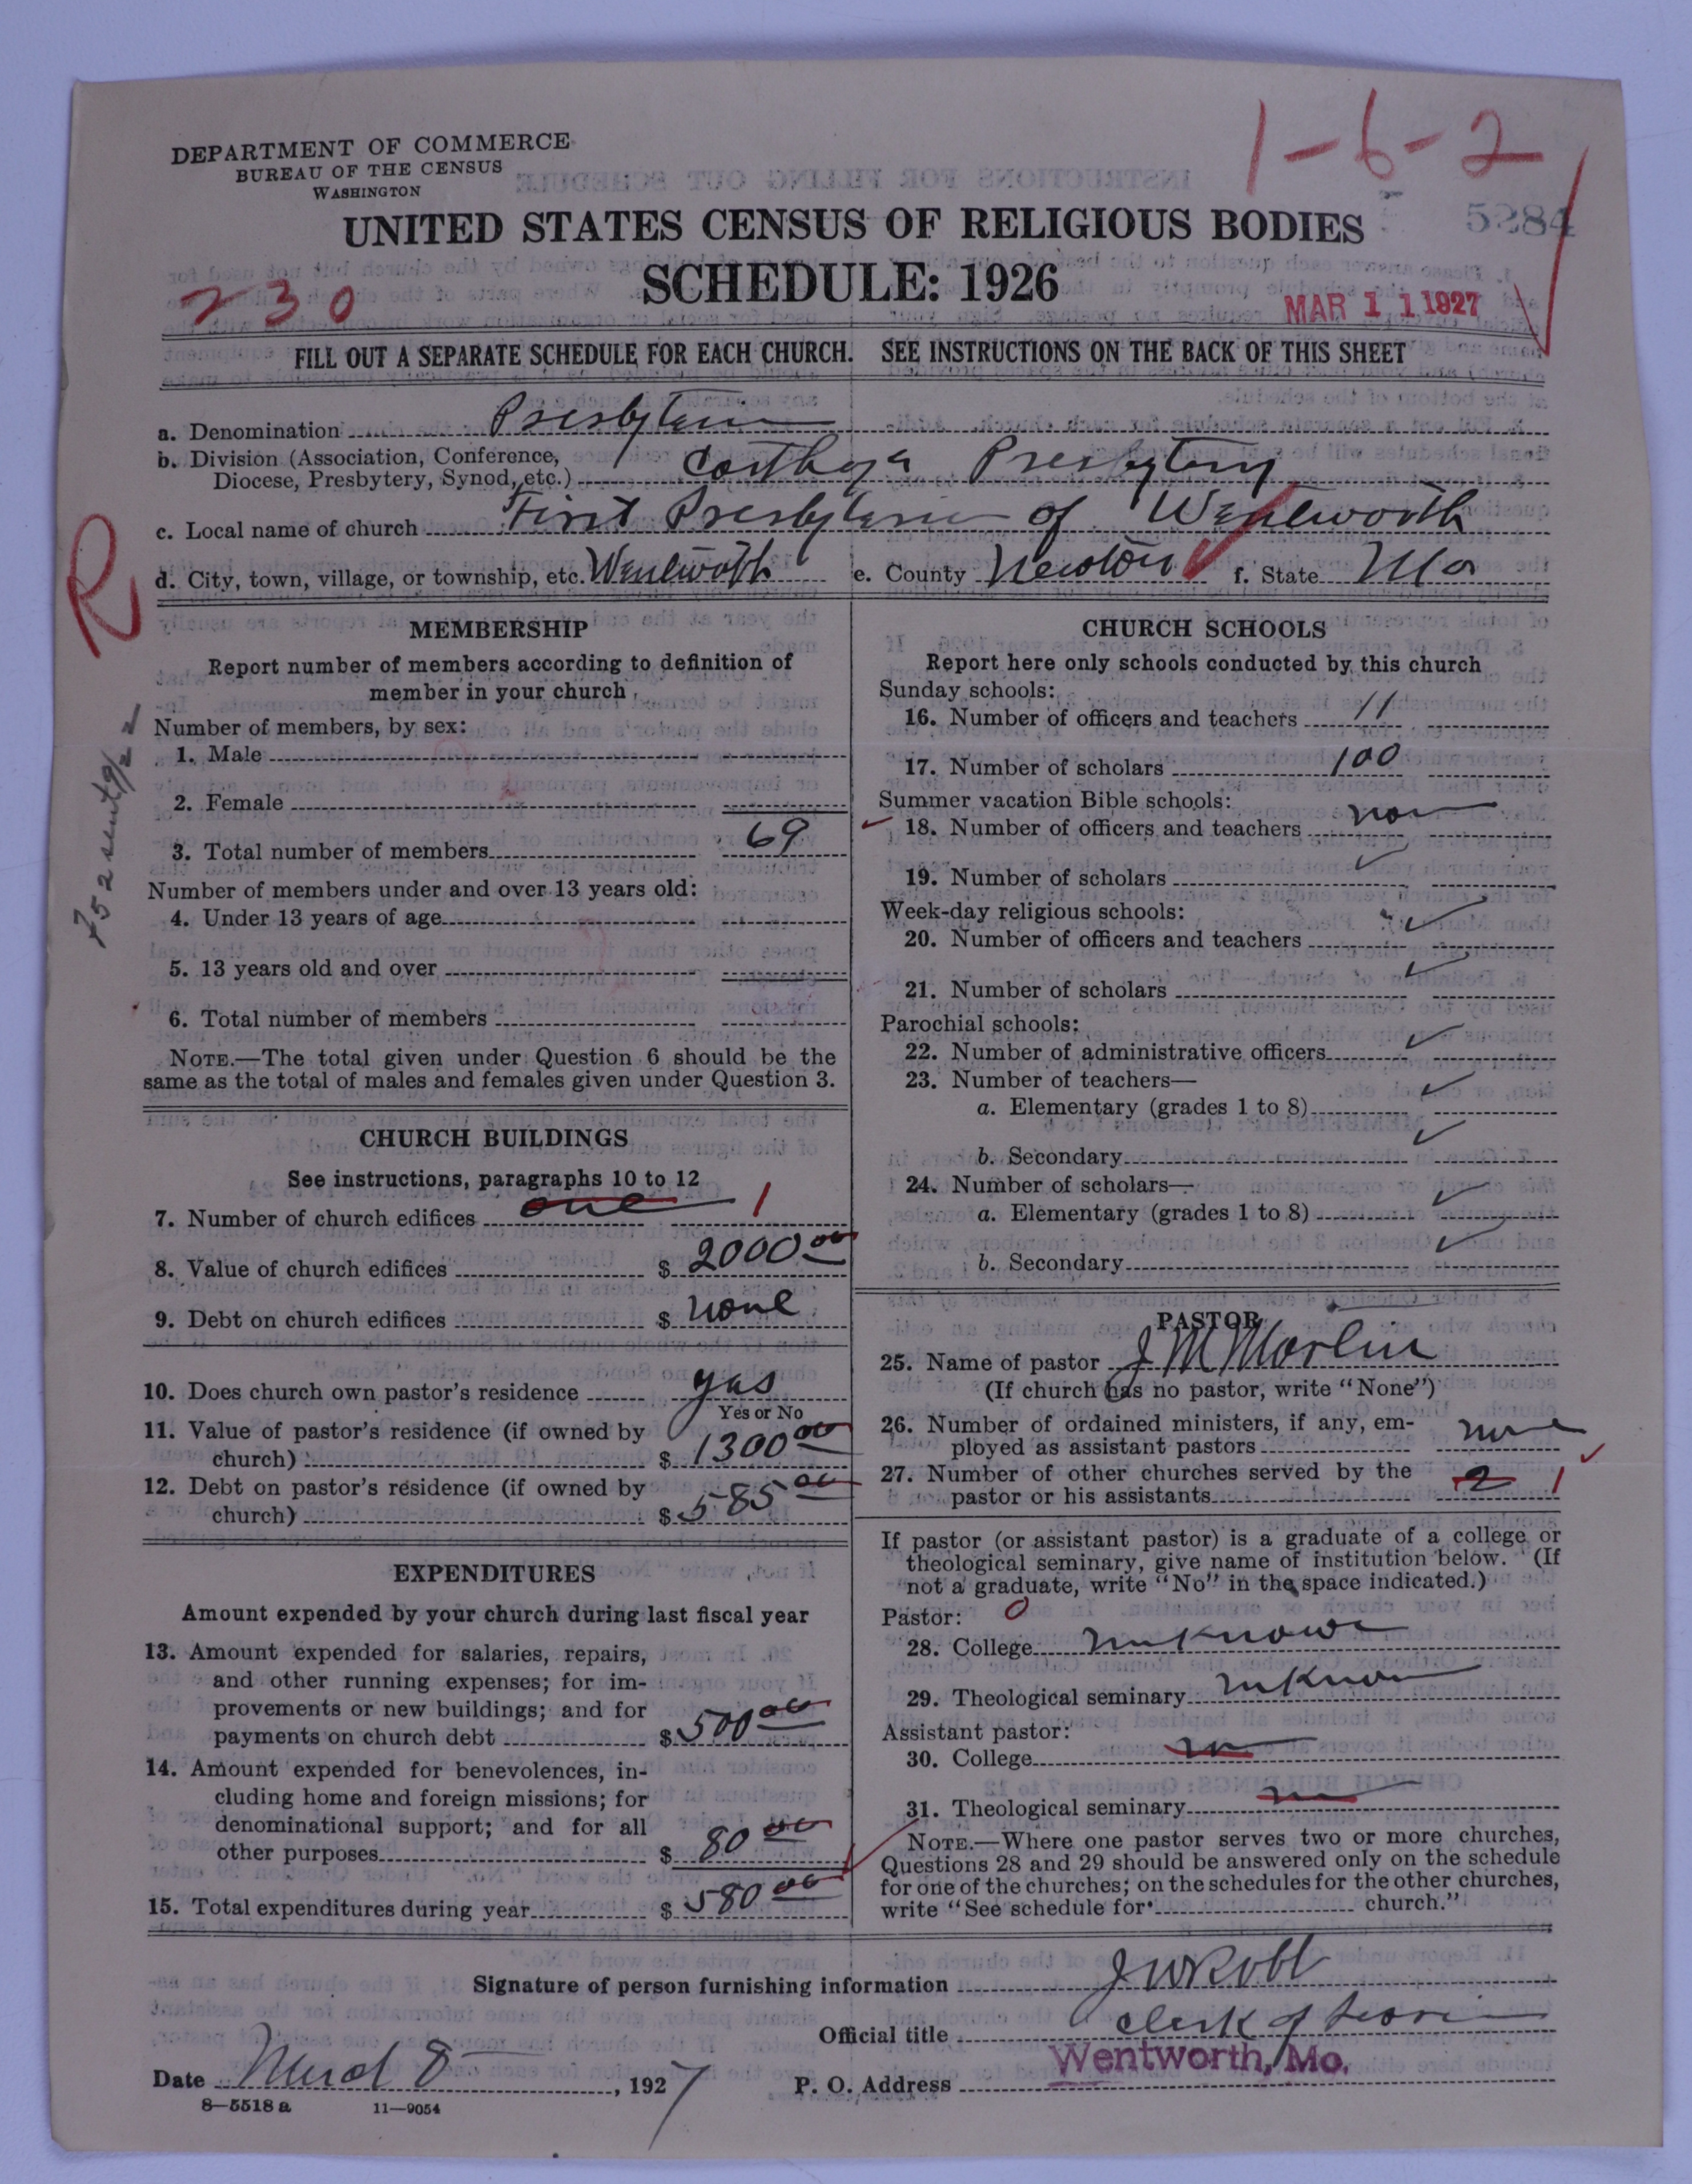 1-6-2
DEPARTMENT OF COMMERCE
BUREAU OF THE CENSUS
WASHINGTON
UNITED STATES CENSUS OF RELIGIOUS BODIES
5284
SCHEDULE: 1926
230
MAR 11 1927
FILL OUT A SEPARATE SCHEDULE FOR EACH CHURCH. SEE INSTRUCTIONS ON THE BACK OF THIS SHEET
a. Denomination Presbyterian
b. Division (Association, Conference,
Diocese, Presbytery, Synod, etc.) Carthage Presbytery
c. Local name of church First Presbyterian of Wentworth
d. City, town, village, or township, etc. Wentworth e. County Newton f. State Mo
R
MEMBERSHIP
Report number of members according to definition of
member in your church
Number of members, by sex:
1. Male
2. Female
3. Total number of members 69
Number of members under and over 13 years old:
4. Under 13 years of age
5. 13 years old and over
6. Total number of members
NOTE.—The total given under Question 6 should be the
same as the total of males and females given under Question 3.
CHURCH BUILDINGS
See instructions, paragraphs 10 to 12
7. Number of church edifices one 1
8. Value of church edifices $ 2000 00
9. Debt on church edifices $ none
10. Does church own pastor's residence yes
Yes or No
11. Value of pastor's residence (if owned by
church) $ 1300 00
12. Debt on pastor's residence (if owned by
church) $ 585 00
EXPENDITURES
Amount expended by your church during last fiscal year
13. Amount expended for salaries, repairs,
and other running expenses; for im-
provements or new buildings; and for
payments on church debt $ 500 00
14. Amount expended for benevolences, in-
cluding home and foreign missions; for
denominational support; and for all
other purposes $ 80 00
15. Total expenditures during year $ 580 00
CHURCH SCHOOLS
Report here only schools conducted by this church
Sunday schools:
16. Number of officers and teachers 11
17. Number of scholars 100
Summer vacation Bible schools:
18. Number of officers and teachers non
19. Number of scholars
Week-day religious schools:
20. Number of officers and teachers
21. Number of scholars
Parochial schools:
22. Number of administrative officers
23. Number of teachers—
a. Elementary (grades 1 to 8)
b. Secondary
24. Number of scholars—
a. Elementary (grades 1 to 8)
b. Secondary
PASTOR
25. Name of pastor J M
(If church has no pastor, write "None")
26. Number of ordained ministers, if any, em-
ployed as assistant pastors none
27. Number of other churches served by the
pastor or his assistants 2 1
If pastor (or assistant pastor) is a graduate of a college or
theological seminary, give name of institution below. (If
not a graduate, write "No" in the space indicated.)
Pastor: 0
28. College unknown
29. Theological seminary unknown
Assistant pastor:
30. College
31. Theological seminary
NOTE.—Where one pastor serves two or more churches,
Questions 28 and 29 should be answered only on the schedule
for one of the churches; on the schedules for the other churches,
write "See schedule for church."
Signature of person furnishing information J W Robb
Official title Clerk of Session
Date March 8, 1927 P. O. Address Wentworth, Mo.
8—5518 a 11—9054